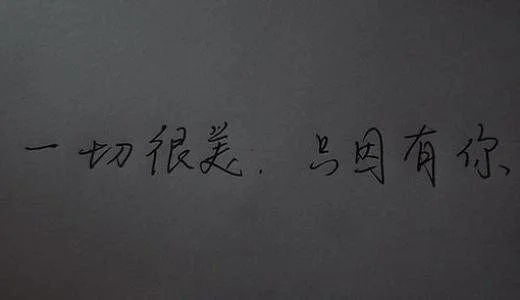 一切很美，只因有你